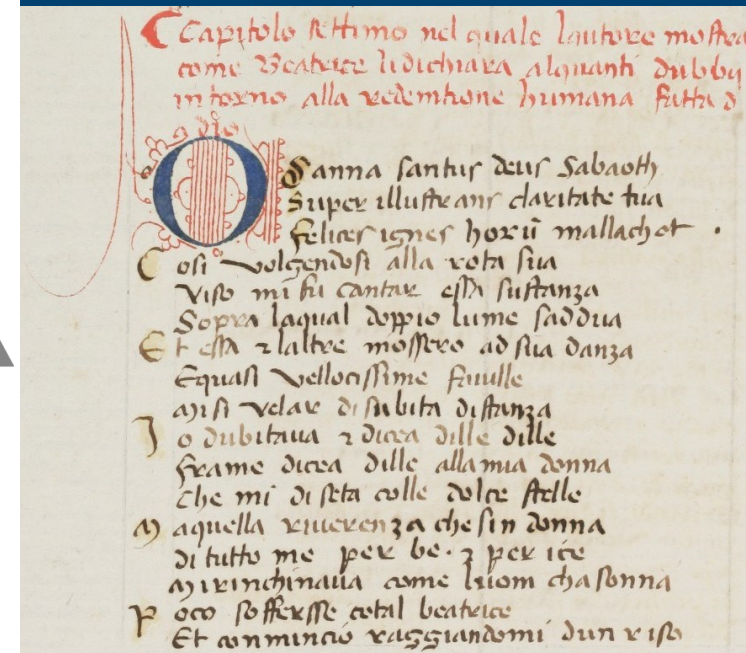 Capitolo settimo nel quale lautore mostra
come Beatrice li dichiara alquanti dubbij
intorno alla redemtione humana fatta d
a dio
Osanna santus deus Sabaoth
Super illustrans claritate tua
Felices ignes horũ mallachot .
Cosi volgendosi alla rota sua
Viso mi fu cantar essa sustanza
Sopra laqual doppio lume saddua
Et essa ⁊ laltre mossero ad sua danza
Equasi vellocissime fauille
Misi velar di subita distanza
Io dubitaua ⁊ dicea dille dille
Frame dicea dille alla mia donna
Che mi diseta colle dolce stelle
Maquella riuerenza che sin donna
di tutto me per be · ⁊ per ice
Mirinchinaua come luom chasonna
Poco soffersse cotal beatrice
Et conminciò raggiandomi dun riso